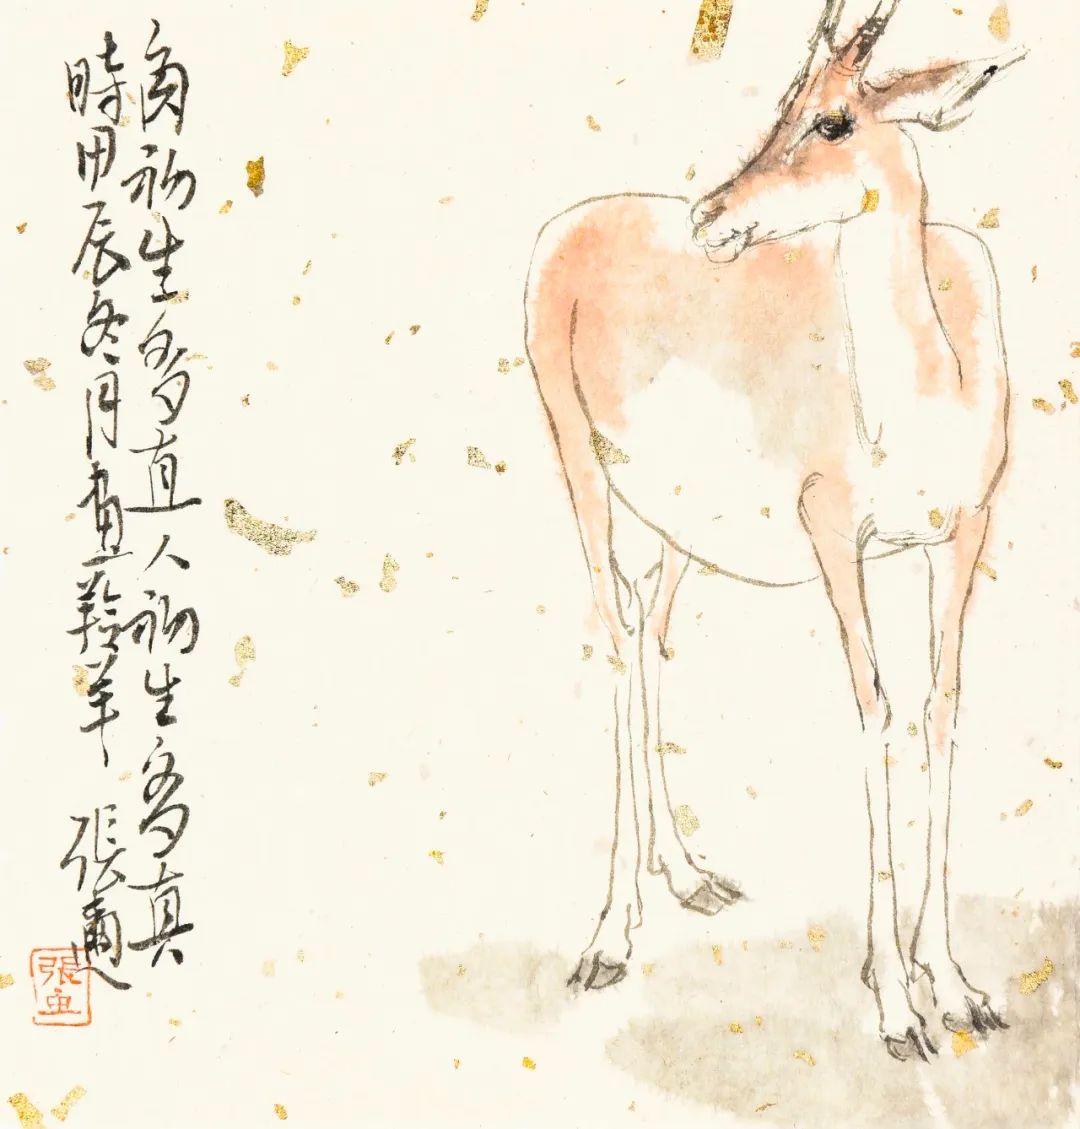 角初生多直人初生多真
時甲辰冬月畫羚羊 張邇
張